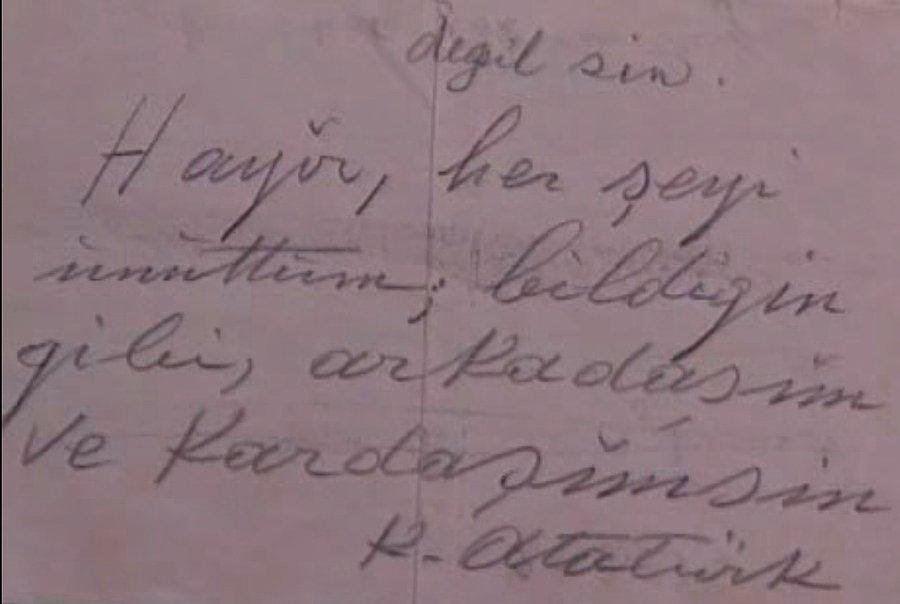 degil sin.
Hayĭr, her şeyi
unuttum; bildigin
gibi, arkadaşĭm
ve Kardaşĭmsin
K. Atatürk